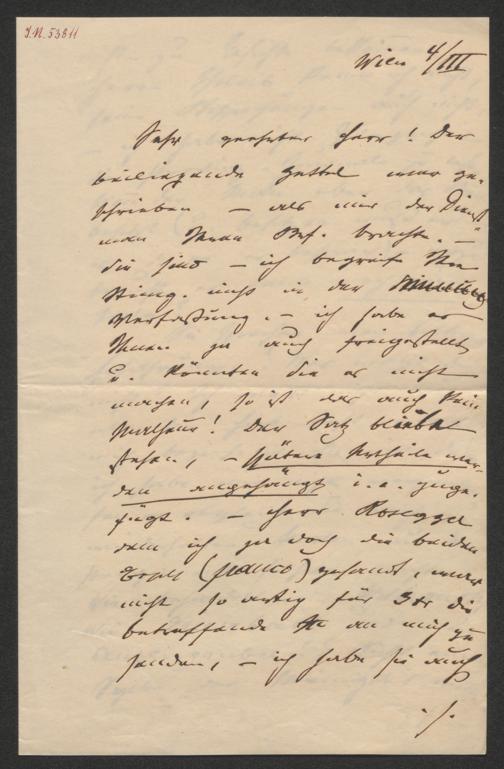 I.N. 53811
Wien 4/III
Sehr geehrter Herr! Der
beiliegende Zettel war ge-
schrieben – als mir der Dienst-
mann Ihren Brf. brachte. –
Sie sind – ich begreife Ihre
nicht in der
Verfassung. – ich habe es
Ihnen ja auch freigestellt
u. könnten Sie es nicht
machen, so ist das auch kein
Malheur! Der Satz bliebe
stehen, – spätere Urtheile wer-
den angehängt i. e. zuge-
fügt. – Herr Rosegger
dem ich ja doch die beiden
Expl (franco) gesandt, war
nicht so artig für 3 kr die
betreffende an mich zu
senden, – ich habe sie auch
./.